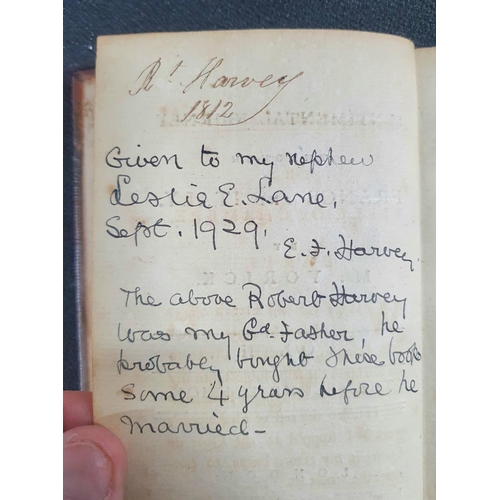 Rt Harvey
1812
Given to my nephew
Leslie E. Lane,
Sept. 1929.
E. J. Harvey.
The above Robert Harvey
was my Gd. Father, he
probably bought these books
some 4 years before he
married-
YORICK